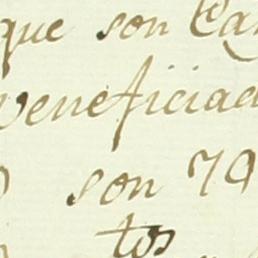 que son
veneficiad
son 79
tos